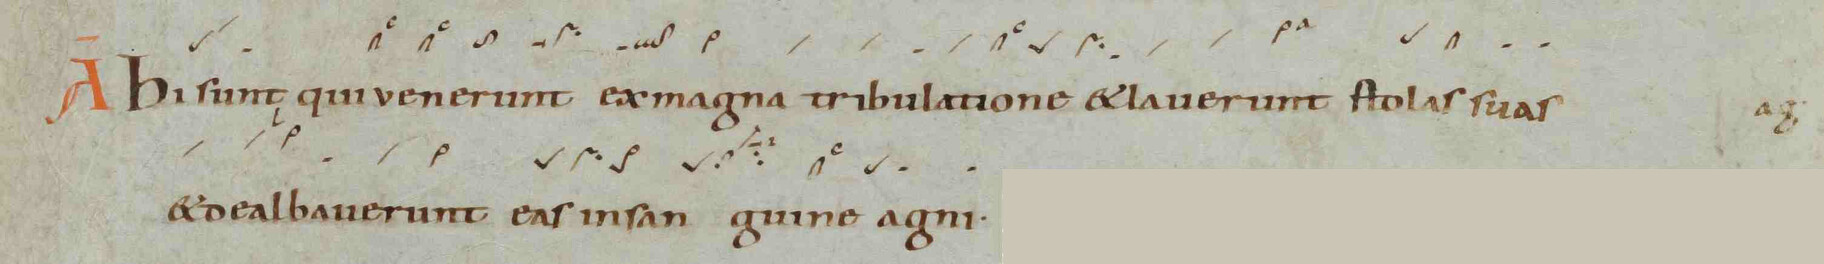 Ā Hi sunt qui venerunt ex magna tribulatione & lauerunt stolas suas ag
& dealbauerunt eas in san guine agni·